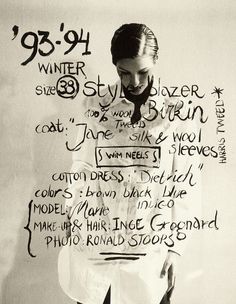 '93-'94
WINTER
size 38 style blazer
100% wool Birkin
TWEED
coat: "Jane" silk & wool
sleeves
HARRIS TWEED *
[WIM NEELS]
COTTON DRESS: "Dietrich"
colors: brown black blue
indigo
MODEL: Marie
MAKE-UP & HAIR: INGE Grognard
PHOTO: RONALD STOOPS